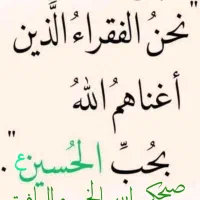 "نحنُ الفقراءُ الَّذين
أغناهمُ اللهُ
بحُبِّ الحُسين ع".
صبحكم الله